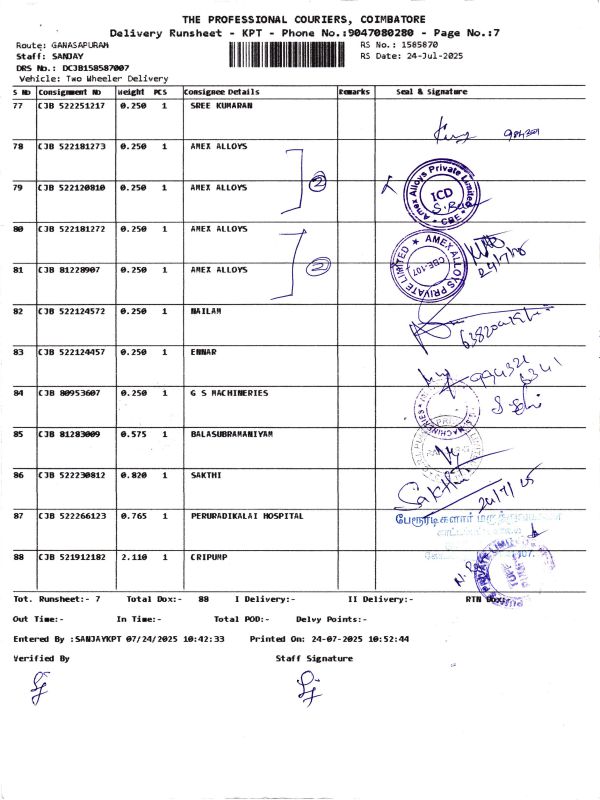 THE PROFESSIONAL COURIERS, COIMBATORE
Delivery Runsheet - KPT - Phone No.:9047080280 - Page No.:7
Route: GANASAPURAM RS No.: 1585870
Staff: SANJAY RS Date: 24-Jul-2025
DRS No.: DCJB158587007
Vehicle: Two Wheeler Delivery
S No Consignment No Weight PCS Consignee Details Remarks Seal & Signature
77 CJB 522251217 0.250 1 SREE KUMARAN
78 CJB 522181273 0.250 1 AMEX ALLOYS
2
79 CJB 522120810 0.250 1 AMEX ALLOYS
Amex Alloys Private Limited
ICD
CBE
80 CJB 522181272 0.250 1 AMEX ALLOYS
2
81 CJB 81228907 0.250 1 AMEX ALLOYS
AMEX ALLOYS PRIVATE LIMITED
CBE-107
24/7/25
82 CJB 522124572 0.250 1 NAILAM
83 CJB 522124457 0.250 1 ENNAR
994321
6341
84 CJB 80953607 0.250 1 G S MACHINERIES
G.S. MACHINERIES
85 CJB 81283009 0.575 1 BALASUBRAMANIYAM
86 CJB 522230812 0.820 1 SAKTHI
Sakthi
24/7/25
87 CJB 522266123 0.765 1 PERURADIKALAI HOSPITAL
பேரூரடிகளார்
88 CJB 521912182 2.110 1 CRIPUMP
PRIVATE LIMITED
Tot. Runsheet:- 7 Total Dox:- 88 I Delivery:- II Delivery:- RTN Dox:-
Out Time:- In Time:- Total POD:- Delvy Points:-
Entered By :SANJAYKPT 07/24/2025 10:42:33 Printed On: 24-07-2025 10:52:44
Verified By Staff Signature